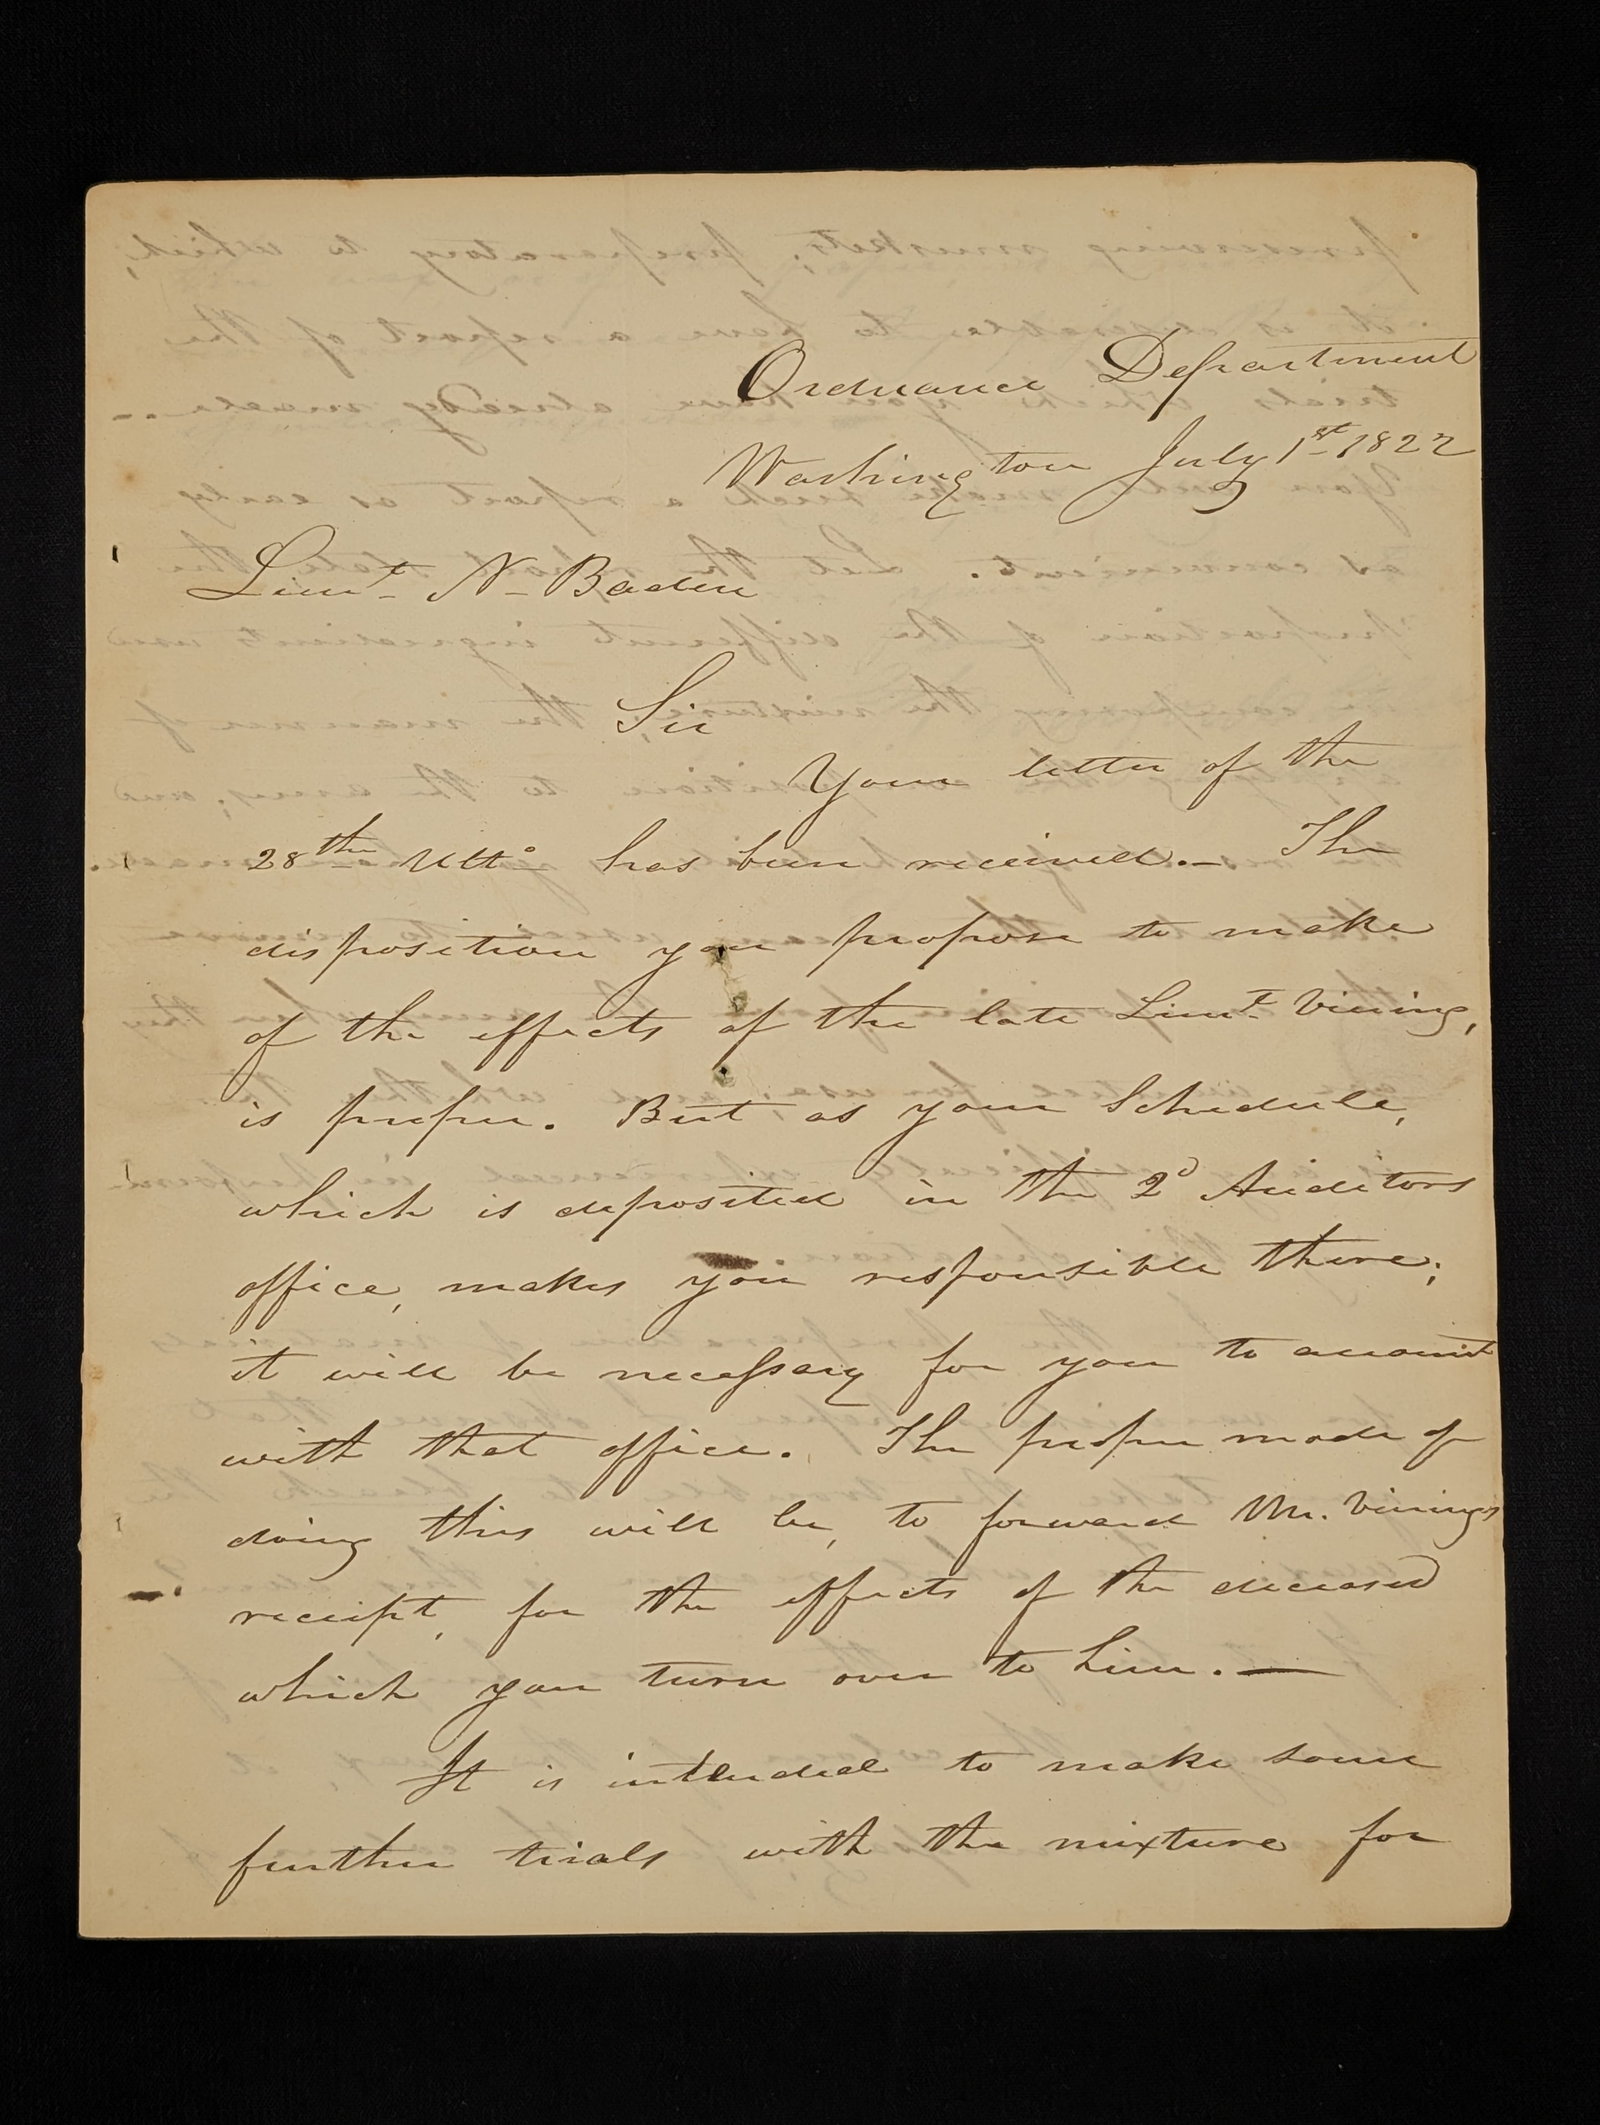 Ordnance Department
Washington July 1st 1822
Lieut. N. Baden
Sir
Your letter of the
28th Ulto. has been received.— The
disposition you propose to make
of the effects of the late Lieut. Vining,
is proper. But as your Schedule,
which is deposited in the 2d Auditors
office, makes you responsible there;
it will be necessary for you to account
with that office. The proper mode of
doing this will be, to forward Mr. Vinings
receipt, for the effects of the deceased
which you turn over to him.—
It is intended to make some
further trials with the mixture for